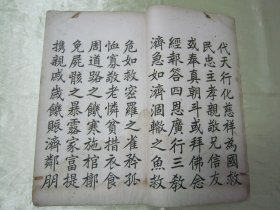 代天行化慈祥為國救
民忠主孝親敬兄信友
或奉真朝斗或拜佛念
經報答四恩廣行三教
濟急如濟涸轍之魚救
危如救密羅之雀矜孤
恤寡敬老憐貧措衣食
周道路之饑寒施棺槨
免屍骸之暴露家富提
携親戚歲饑賑濟鄰朋